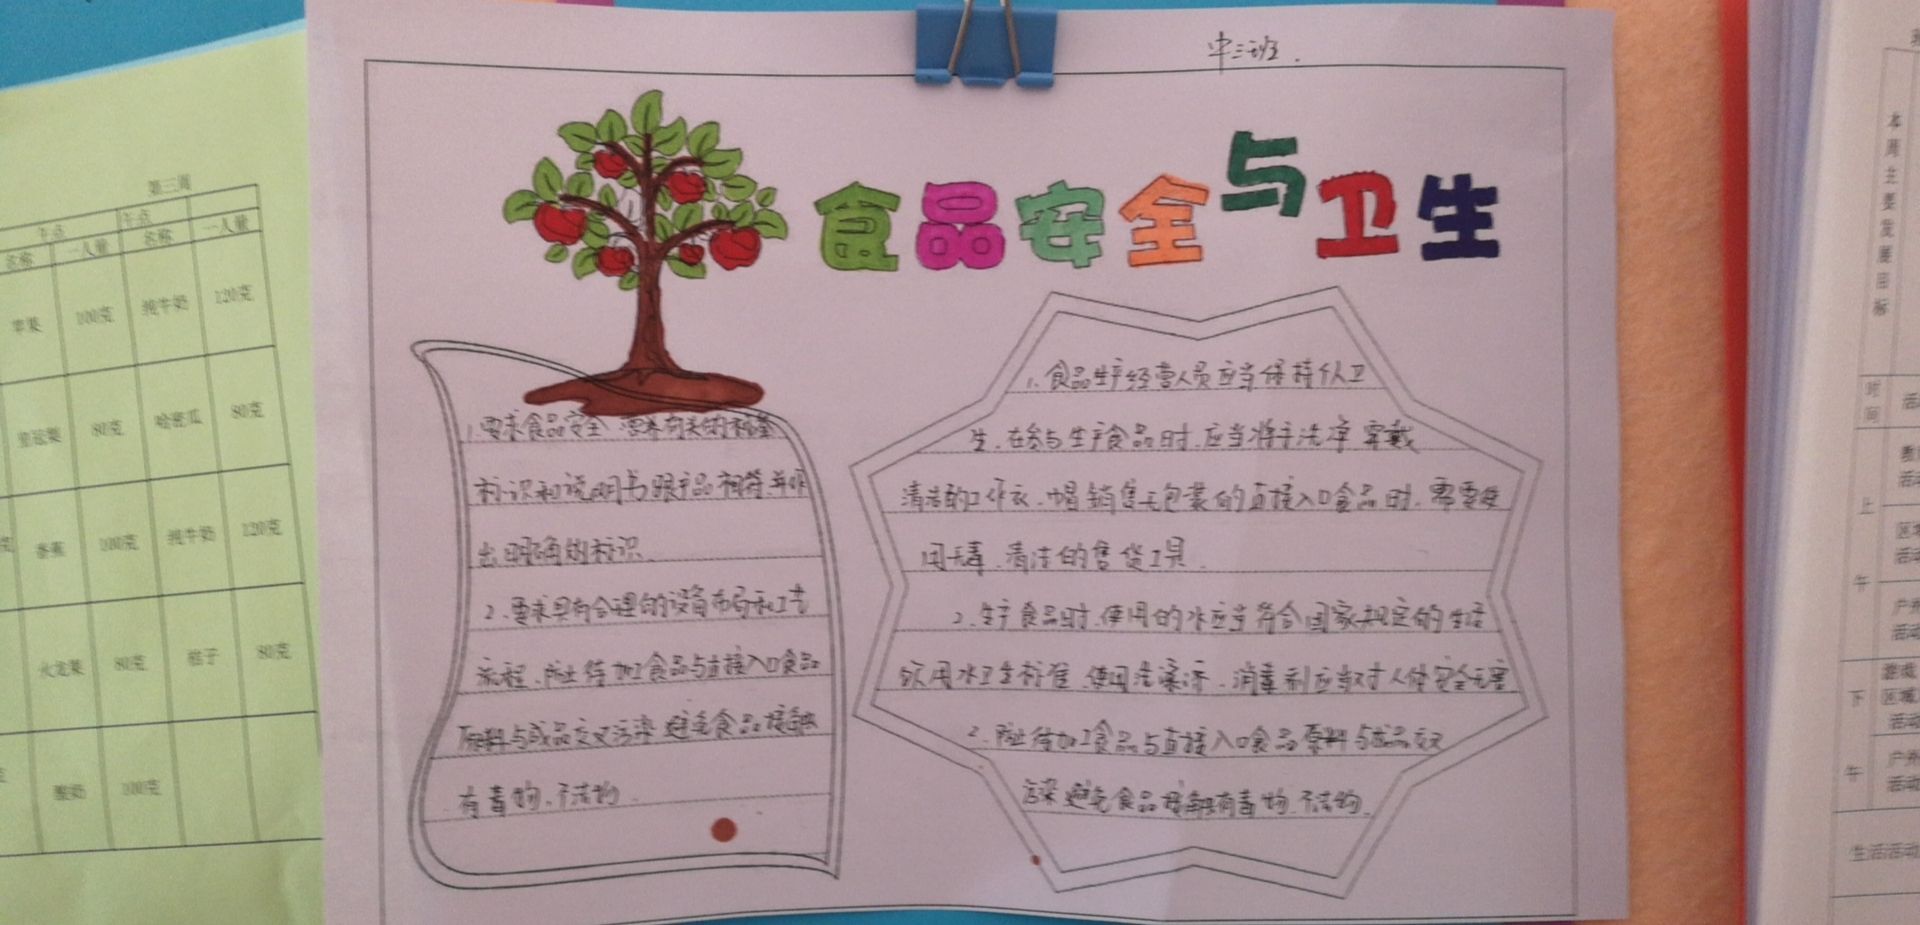 第三周
午点
午点
名称 一人量 名称 一人量
苹果 100克 纯牛奶 120克
皇冠梨 80克 哈密瓜 80克
克 香蕉 100克 纯牛奶 120克
火龙果 80克 桔子 80克
酸奶 100克
中三班.
食品安全与卫生
1.要求食品安全 营养有关的标签
标识和说明书跟产品相符,并作
出明确的标识.
2.要求具有合理的设备布局和工艺
流程,防止待加工食品与直接入口食品
原料与成品交叉污染,避免食品接触
有毒物,不洁物.
1.食品生产经营人员应当保持个人卫
生,在参与生产食品时,应当将手洗净,穿戴
清洁的工作衣、帽,销售无包装的直接入口食品时,需要使
用无毒、清洁的售货工具.
2.生产食品时,使用的水应当符合国家规定的生活
饮用水卫生标准,使用洗涤济、消毒剂应当对人体安全无害
2.防止待加工食品与直接入口食品原料与成品交叉
污染,避免食品接触有毒物,不洁物.
本周主要发展目标
时间
活
上午
教
活动
区域
活动
户外
活动
下午
游戏
区域
活动
户外
活动
生活活动